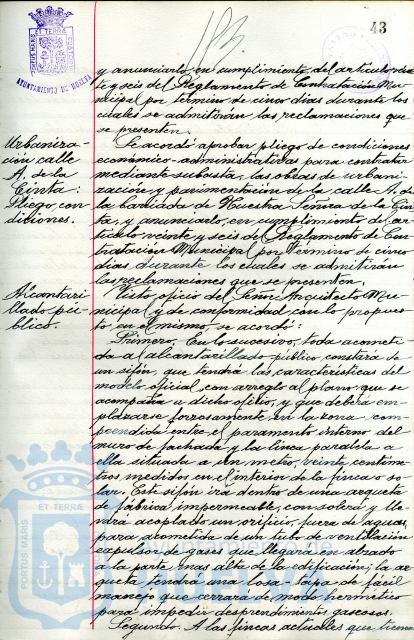 43
PORTUS MARIS ET TERRÆ CUSTODIA
AYUNTAMIENTO DE HUELVA
y anunciarlo, en cumplimiento del artículo vein
te y seis del Reglamento de Contratación Mu-
nicipal por término de cinco días durante los
cuales se admitirán las reclamaciones que
se presenten.
Urbaniza-
ción calle
A. de la
Cinta:
Pliego con-
diciones.
Se acordó aprobar pliego de condiciones
económico-administrativas para contratar
mediante subasta, las obras de urbani-
zación y pavimentación de la calle A. de
la barriada de Nuestra Señora de la Cin
ta, y anunciarlo, en cumplimiento de ar-
tículo veinte y seis del Reglamento de Con-
tratación Municipal por término de cinco
días durante los cuales se admitirán
las reclamaciones que se presenten.
Alcantari-
llado pú-
blico.
Visto oficio del Señor Arquitecto Mu-
nicipal y de conformidad con lo propues
to en el mismo, se acordó:
Primero. En lo sucesivo, toda acometi-
da a alcantarillado público constará de
un sifón, que tendrá las características del
modelo oficial con arreglo al plano que se
acompaña a dicho oficio, y que deberá em-
plazarse forzosamente en la zona com-
prendida entre el paramento interno del
muro de fachada y la línea paralela a
ella situada a un metro, veinte centíme-
tros medidos en el interior de la finca o so-
lar. Este sifón irá dentro de una arqueta
de fábrica impermeable, con solera y lle-
vará acoplado un orificio, fuera de aguas,
para acometida de un tubo de ventilación
expulsor de gases que llegará en alzado
a la parte mas alta de la edificación; la ar
queta tendrá una losa tapa de fácil
manejo que cerrará de modo hermético
para impedir desprendimientos gaseosos.
Segundo. A las fincas actuales que tienen
PORTUS MARIS ET TERRÆ
Ayuntamiento de